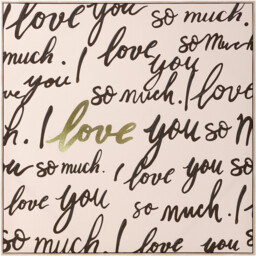 I love you so much.
much. I love you so much
love you so much. I love
h. I love you so m
you so much. I love you so
I love you so much. I
so much. I love you